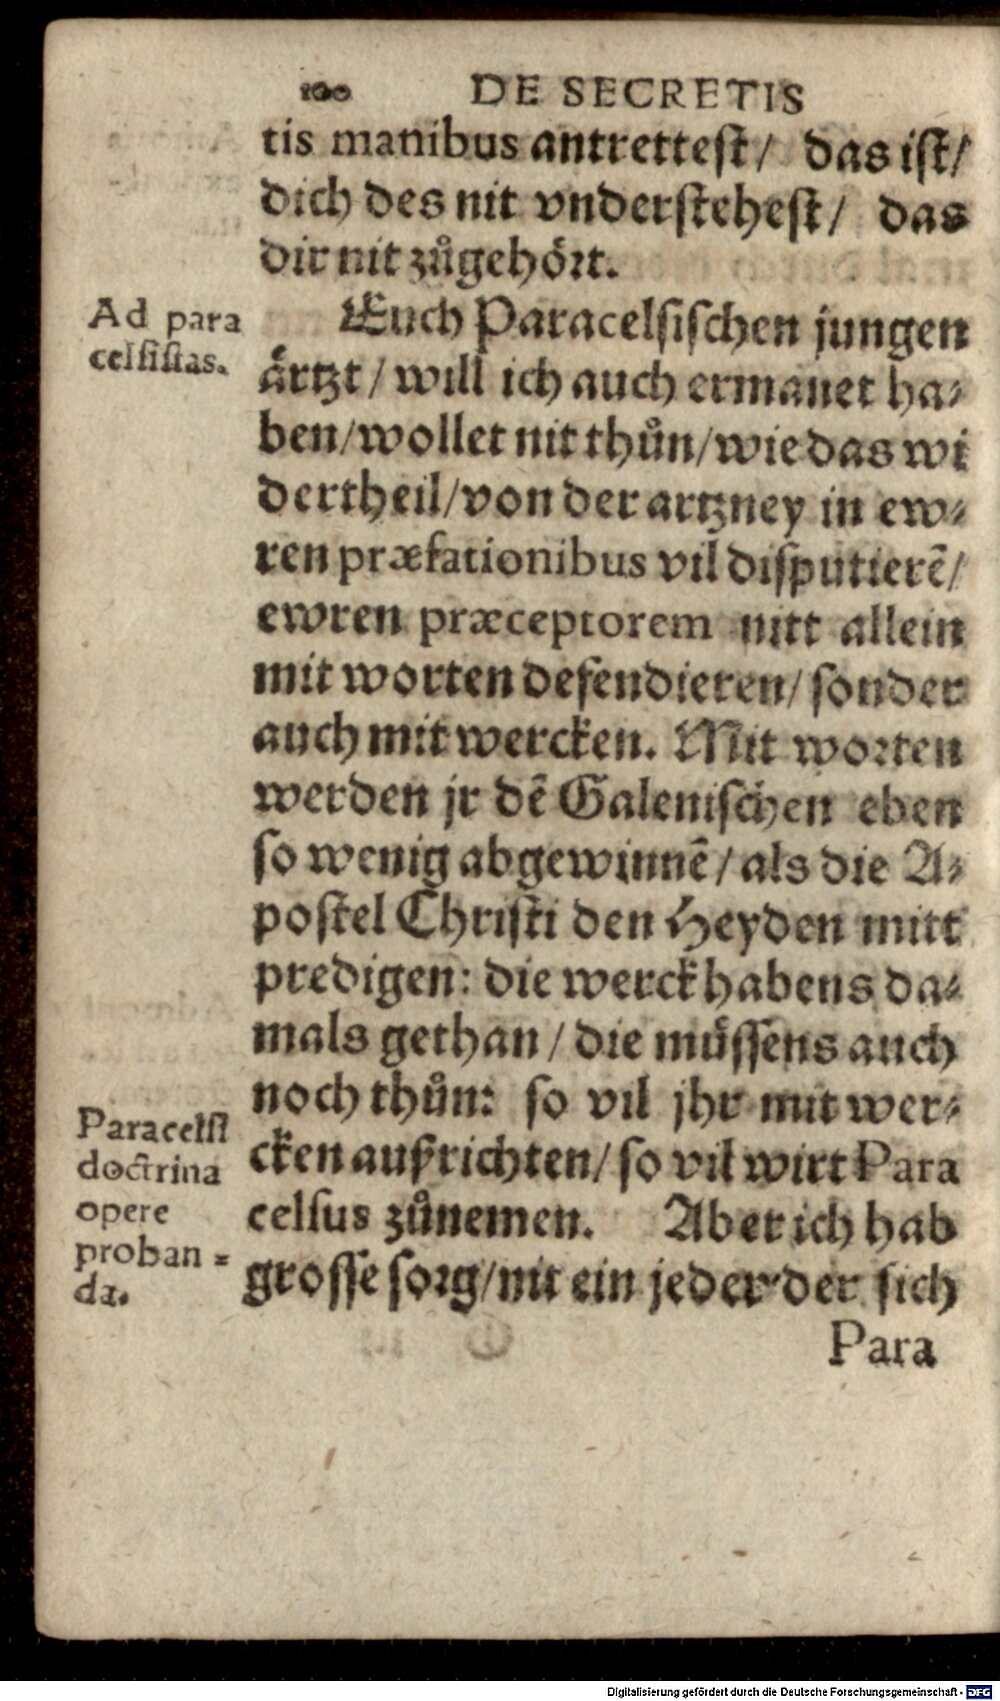 100 DE SECRETIS
tis manibus antrettest/ das ist/
dich des nit vnderstehest/ das
dir nit zůgehört.
Ad para
celsistas.
Euch Paracelsischen jungen
ärtzt/ will ich auch ermanet ha⸗
ben/wollet nit thůn/wie das wi
dertheil/von der artzney in ew⸗
ren præfationibus vil disputierẽ/
ewren præceptorem nitt allein
mit worten defendieren/ sonder
auch mit wercken. Mit worten
werden jr dẽ Galenischen eben
so wenig abgewinnẽ/ als die A⸗
postel Christi den Heyden mitt
predigen: die werck habens da⸗
mals gethan/ die müssens auch
noch thůn: so vil jhr mit wer⸗
Paracelsi
doctrina
opere
proban⸗
da.
cken außrichten/ so vil wirt Para
celsus zůnemen. Aber ich hab
grosse sorg/nit ein jeder der sich
Para
Digitalisierung gefördert durch die Deutsche Forschungsgemeinschaft - DFG